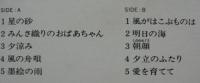 SIDE：A
1 星の砂
2 みんさ織りのおばあちゃん
3 夕涼み
4 風の舟唄
5 墨絵の雨
SIDE：B
1 風がはこぶものは
2 明日の海
3 朝顔
4 夕立のふたり
5 愛を育てて